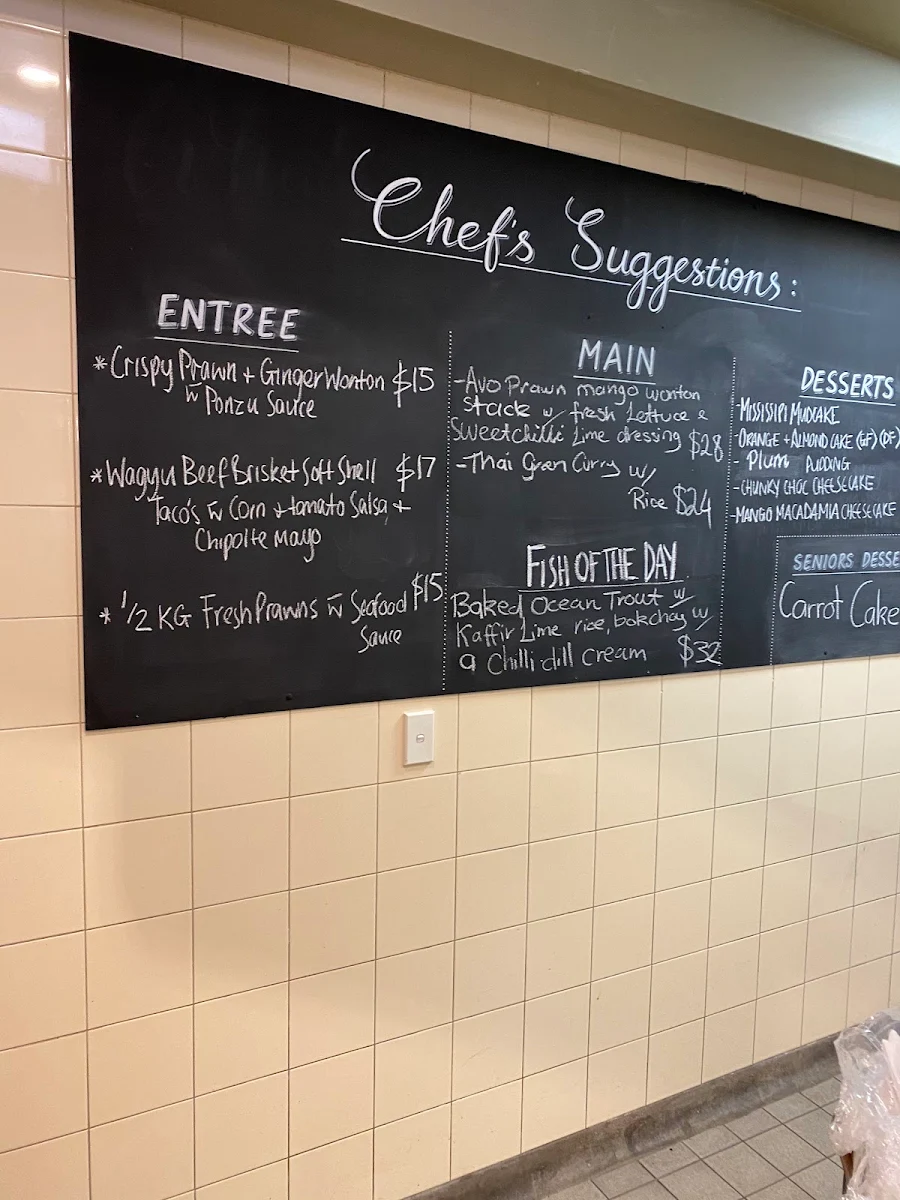 Chef's Suggestions:
ENTREE
* Crispy Prawn + Ginger Wonton $15
w Ponzu Sauce
* Wagyu Beef Brisket Soft Shell $17
Taco's w Corn + tomato Salsa +
Chipolte Mayo
* 1/2 KG Fresh Prawns w Seafood $15
Sauce
MAIN
- Avo Prawn mango wonton
stack w/ fresh lettuce &
Sweetchilli Lime dressing $28
- Thai Gren Curry w/
Rice $24
FISH OF THE DAY
Baked Ocean Trout w/
Kaffir Lime rice, bokchoy w/
a Chilli dill cream $32
DESSERTS
- MISSISIPI MUDCAKE
- ORANGE + ALMOND CAKE (GF) (DF)
- Plum PUDDING
- CHUNKY CHOC CHEESECAKE
- MANGO MACADAMIA CHEESECAKE
SENIORS DESSE
Carrot Cake